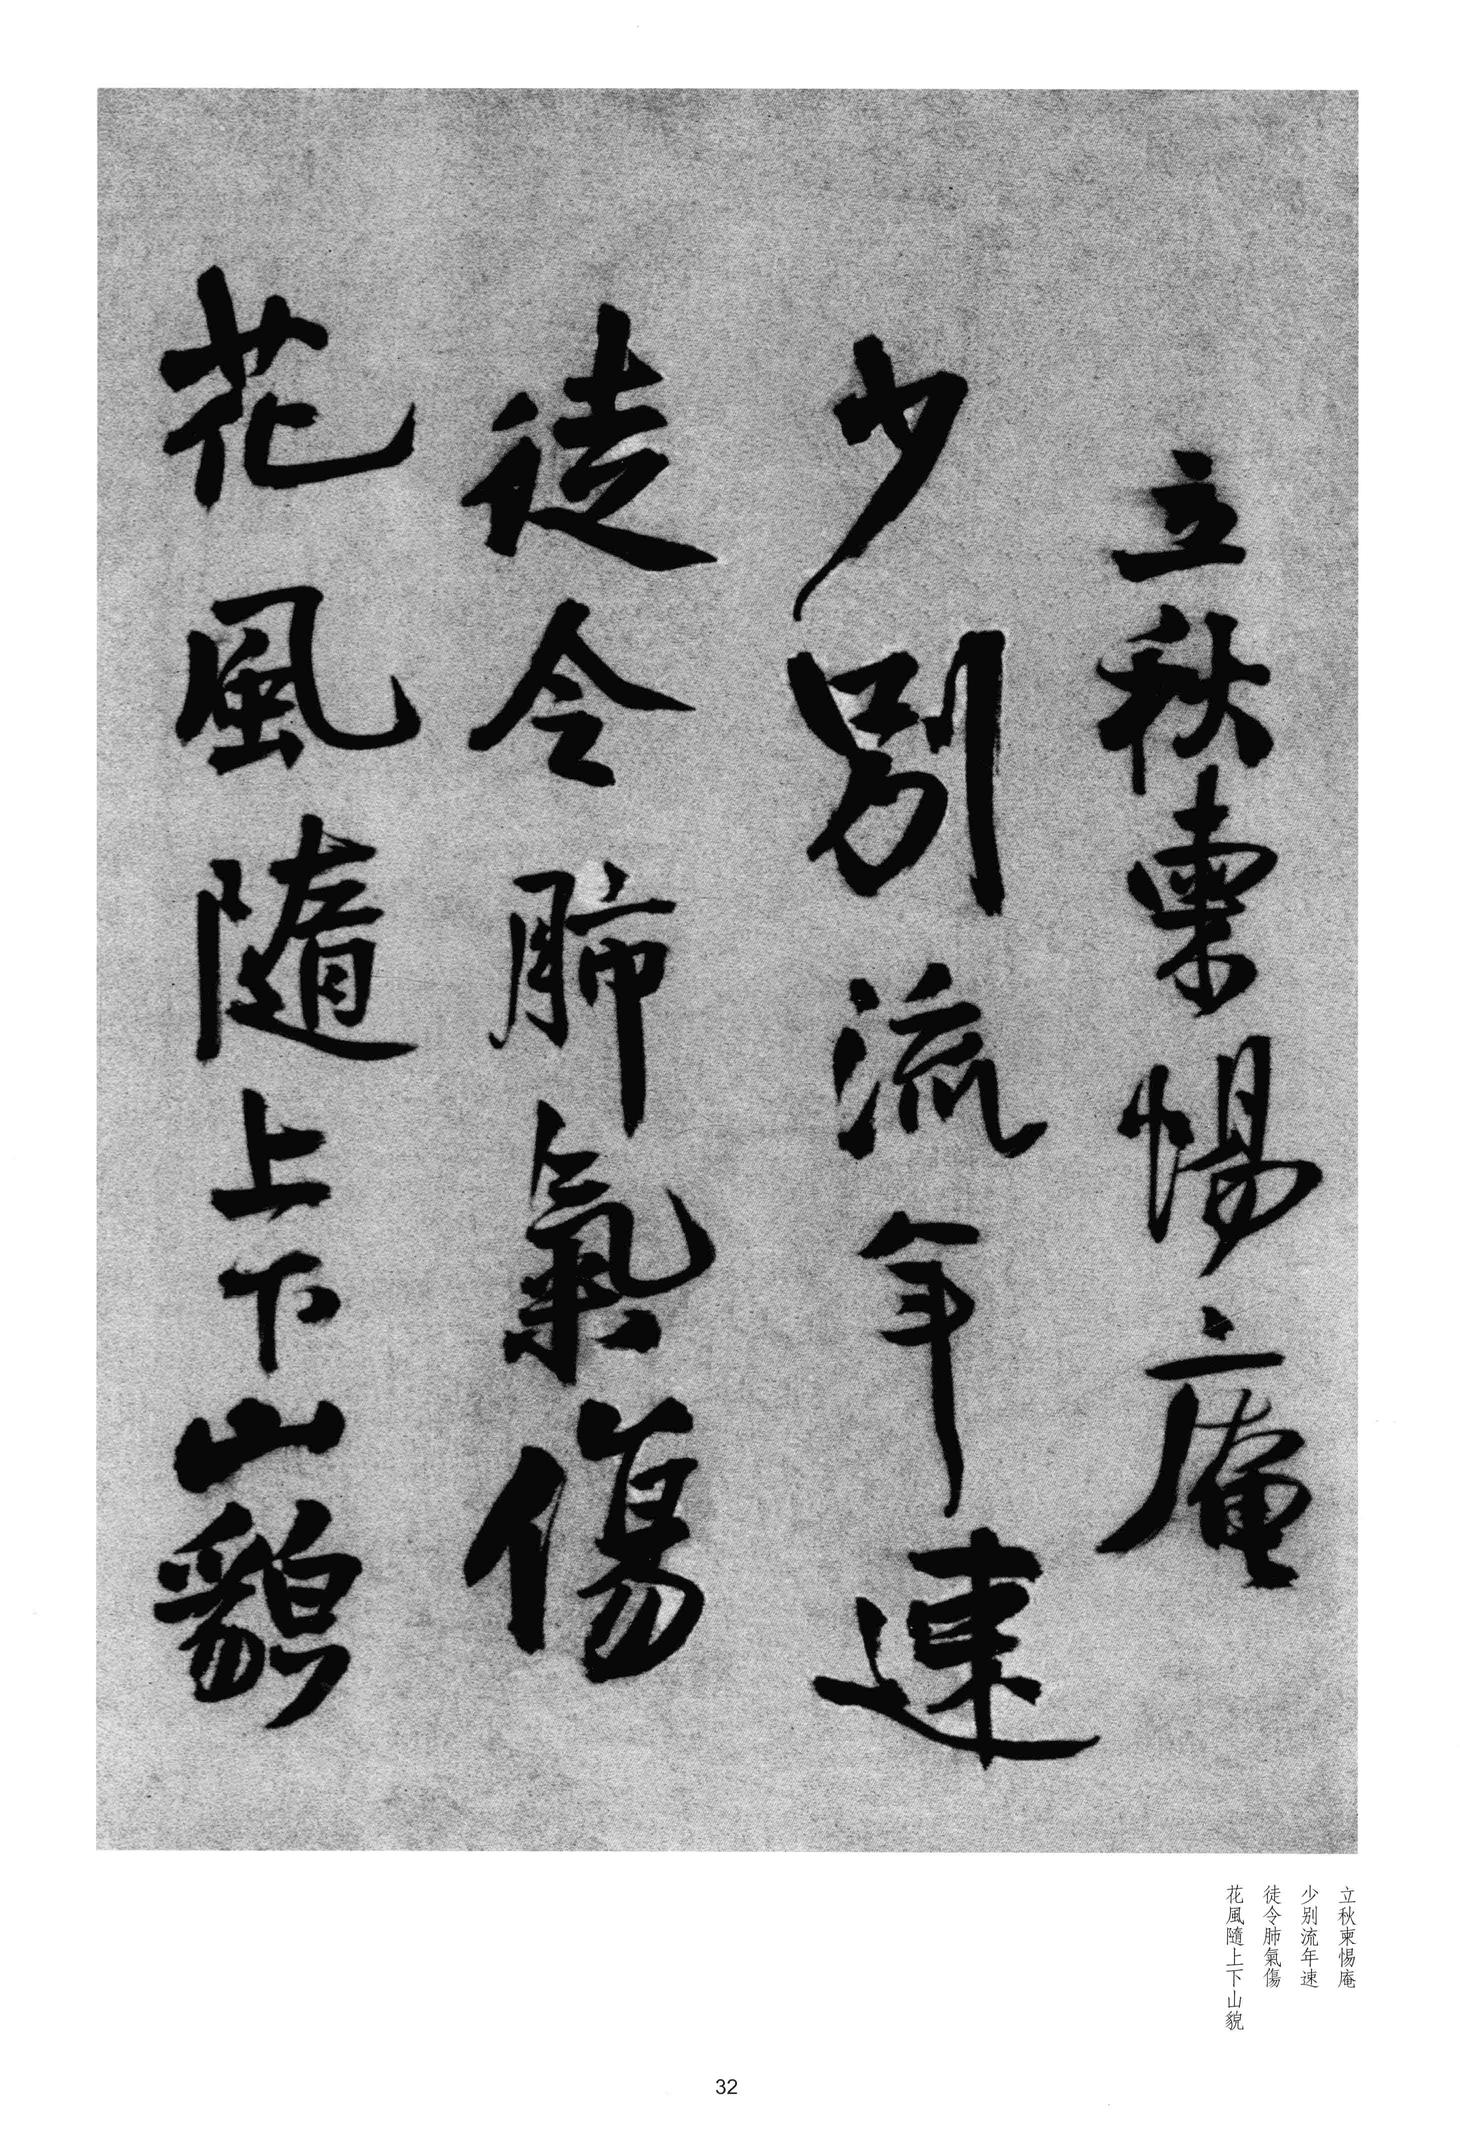 立秋柬惕庵
少别流年速
徒令肺氣傷
花風隨上下山貌
立秋柬惕庵
少别流年速
徒令肺氣傷
花風隨上下山貌
32